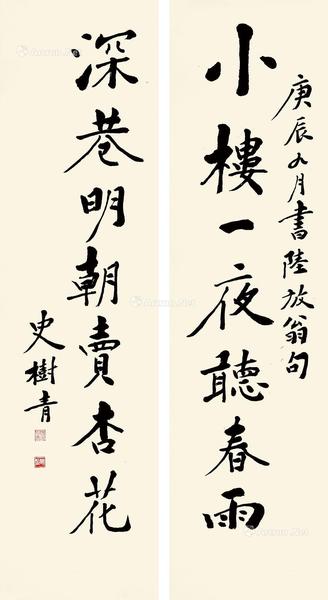 庚辰九月書陸放翁句
小樓一夜聽春雨
深巷明朝賣杏花
史樹青